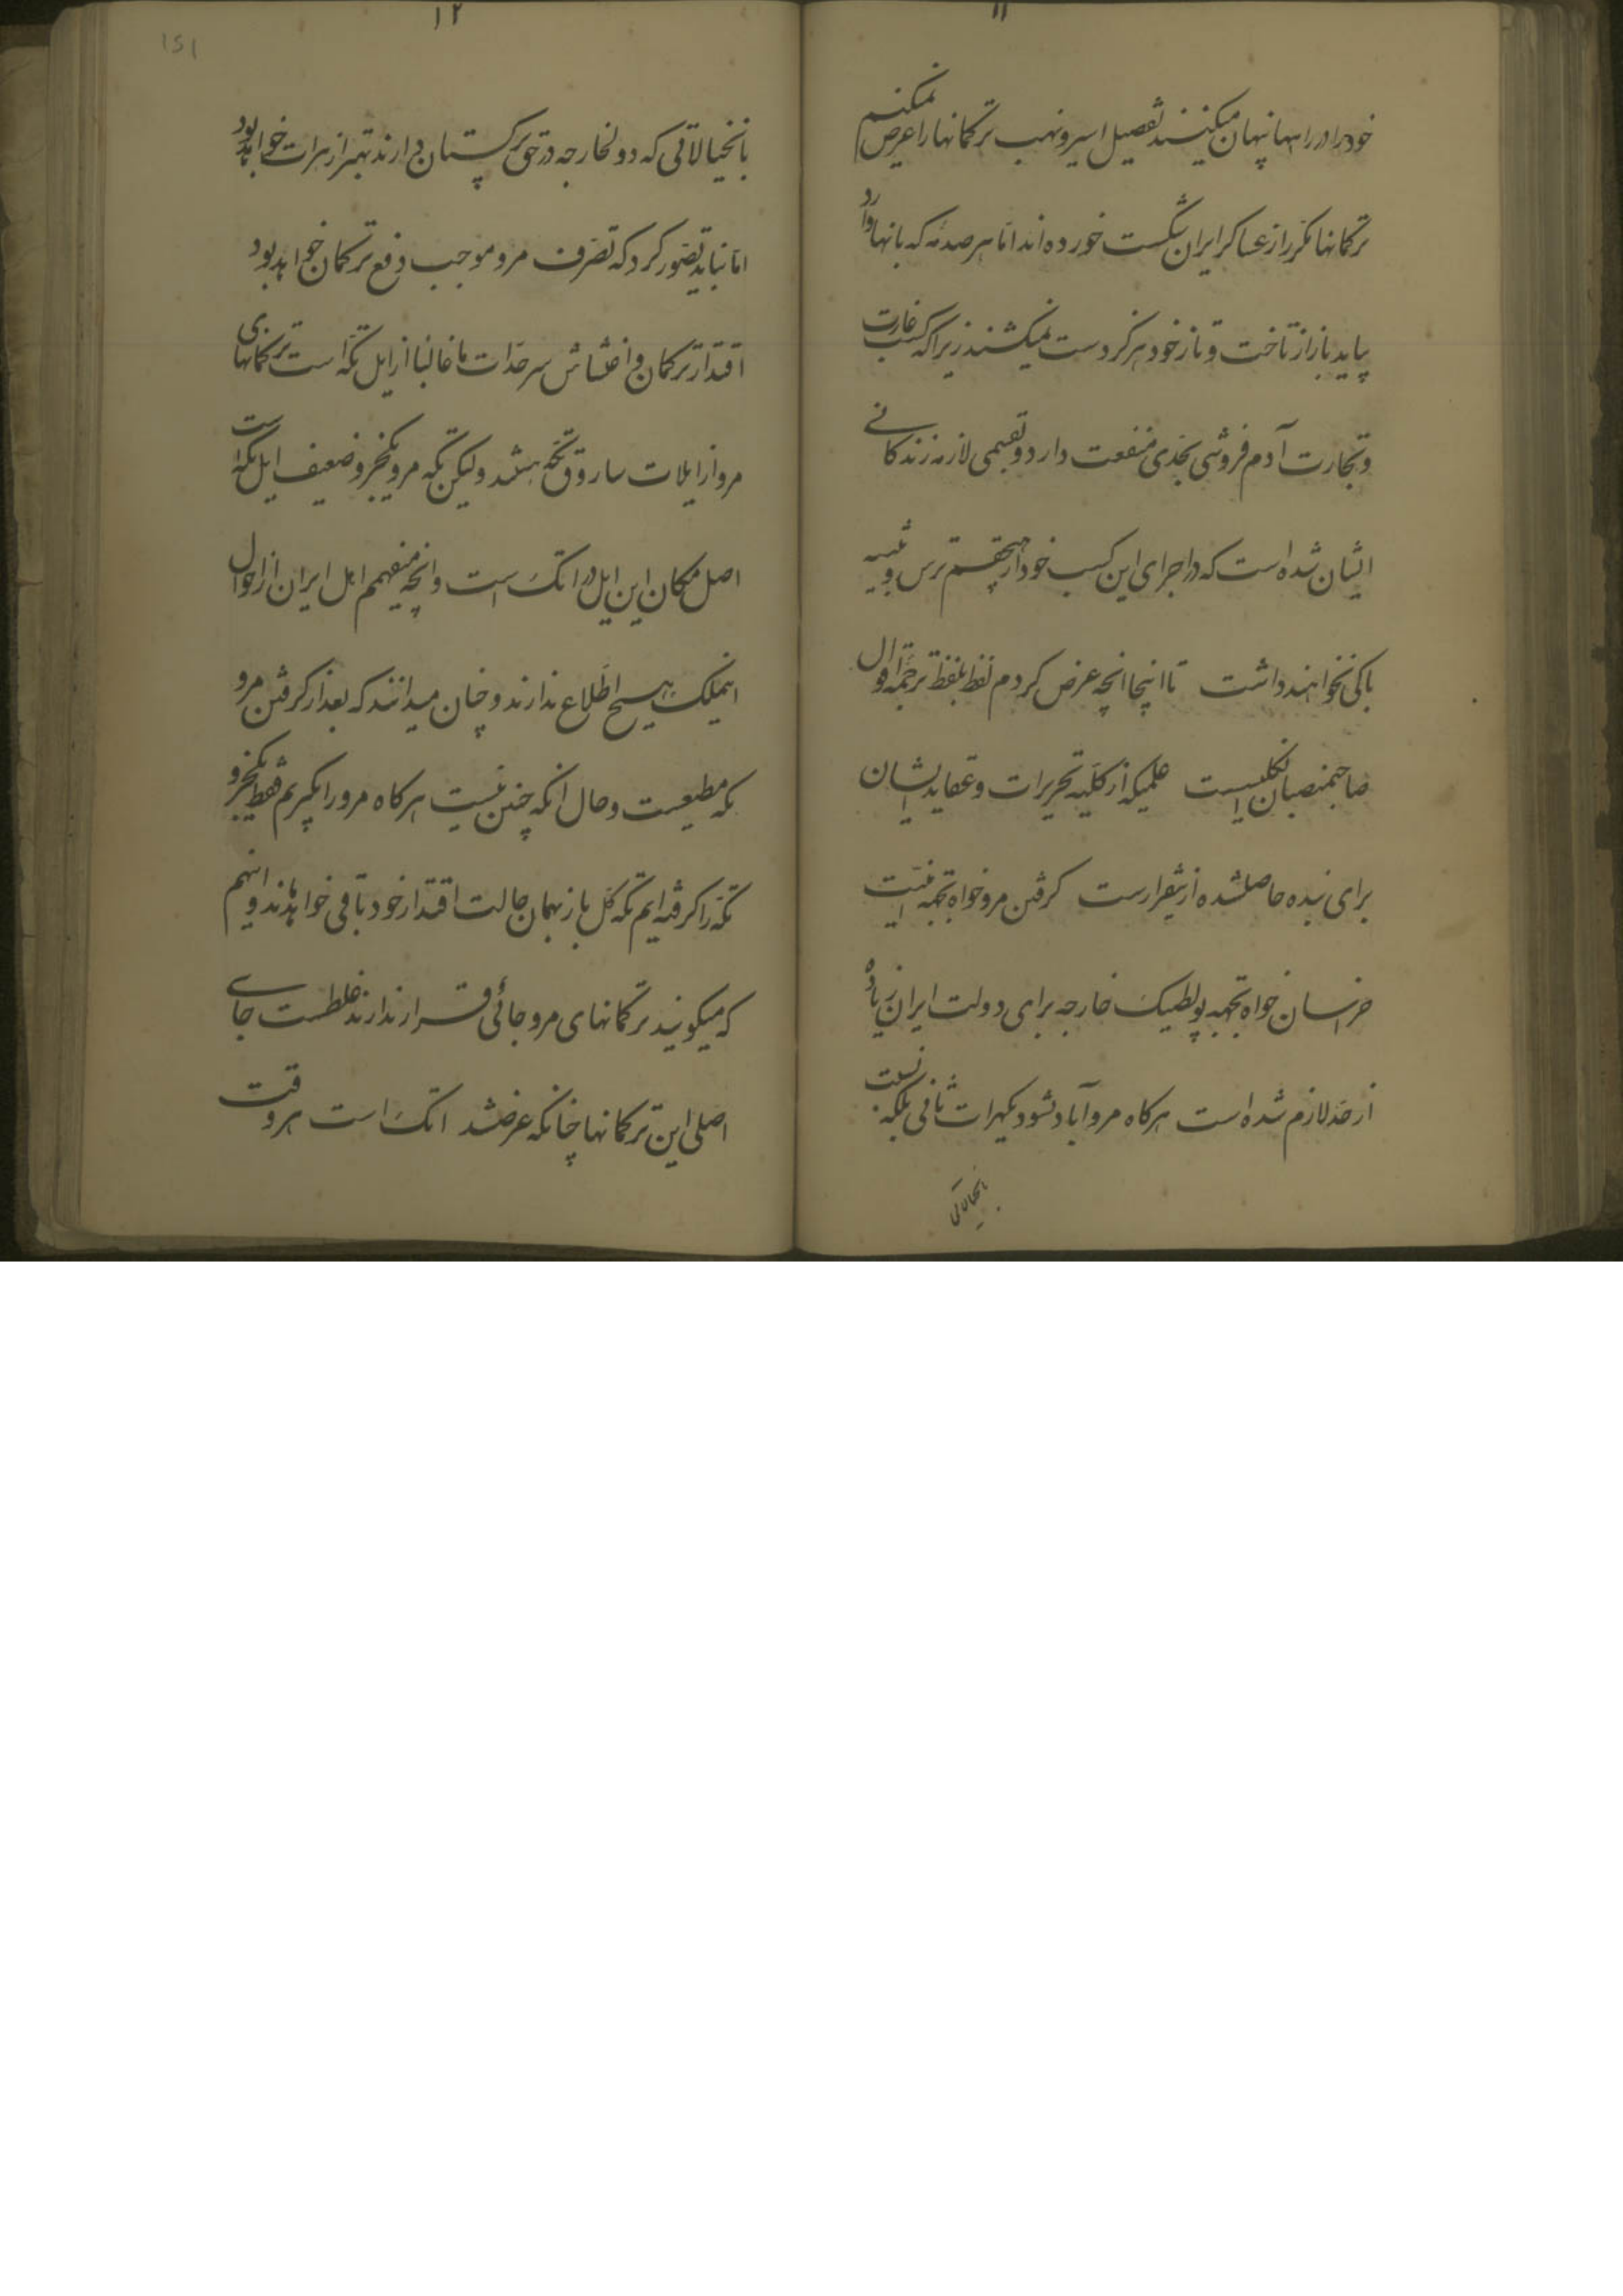 ۱۱
خود را در راهها پنهان میکنند تفصیل اسر و نهب ترکمانها را عرض نمیکنم
ترکمانها مکرر از عساکر ایران شکست خورده‌اند اما هر صدمه که بانها وارد
بیاید باز از تاخت و تاز خود هرگز دست نمیکشند زیرا که کسب غارت
و تجارت آدم فروشی بحدی منفعت دارد و بقسمی لازمه زندکانی
ایشان شده است که در اجرای این کسب خود از هیچقسم ترس و تنبیه
باکی نخواهند داشت تا اینجا انچه عرض کردم لفظ بلفظ ترجمه اقوال
صاحبمنصبان انکلیس است علمیکه از کلیه تحریرات و عقاید ایشان
برای بنده حاصلشده از ینقرارست کرفتن مرو خواه بجهه امنیت
خراسان خواه بجهه پولطیک خارجه برای دولت ایران زیاده
از حد لازم شده است هرکاه مرو آباد بشود یکهرات ثانی بلکه نسبت
بانخیالاتی
۱۲
151
بانخیالاتی که دول خارجه در حق ترکستان دارند بهتر از هرات خواهد بود
اما نباید تصور کرد که تصرف مرو موجب دفع ترکمان خواهد بود
اقتدار ترکمان و اغتشاش سرحدات ما غالبا از ایل تکه است ترکمانهای
مرو از ایلات ساروق و تکه هستند ولیکن تکه مرو یکجزو ضعیف ایل تکه است
اصل مکان این ایل در اتک است و انچه میفهمم اهل ایران از احوال
اینملک هیچ اطلاع ندارند و چنان میدانند که بعد از کرفتن مرو
تکه مطیعست و حال انکه چنین نیست هرکاه مرو را بکیریم فقط یکجزو
تکه را کرفته‌ایم تکه کل باز بهمان حالت اقتدار خود باقی خواهد ماند و اینهم
که میکویند ترکمانهای مرو جائی قرار ندارند غلطست جای
اصلی این ترکمانها چنانکه عرض شد اتک است هر وقت